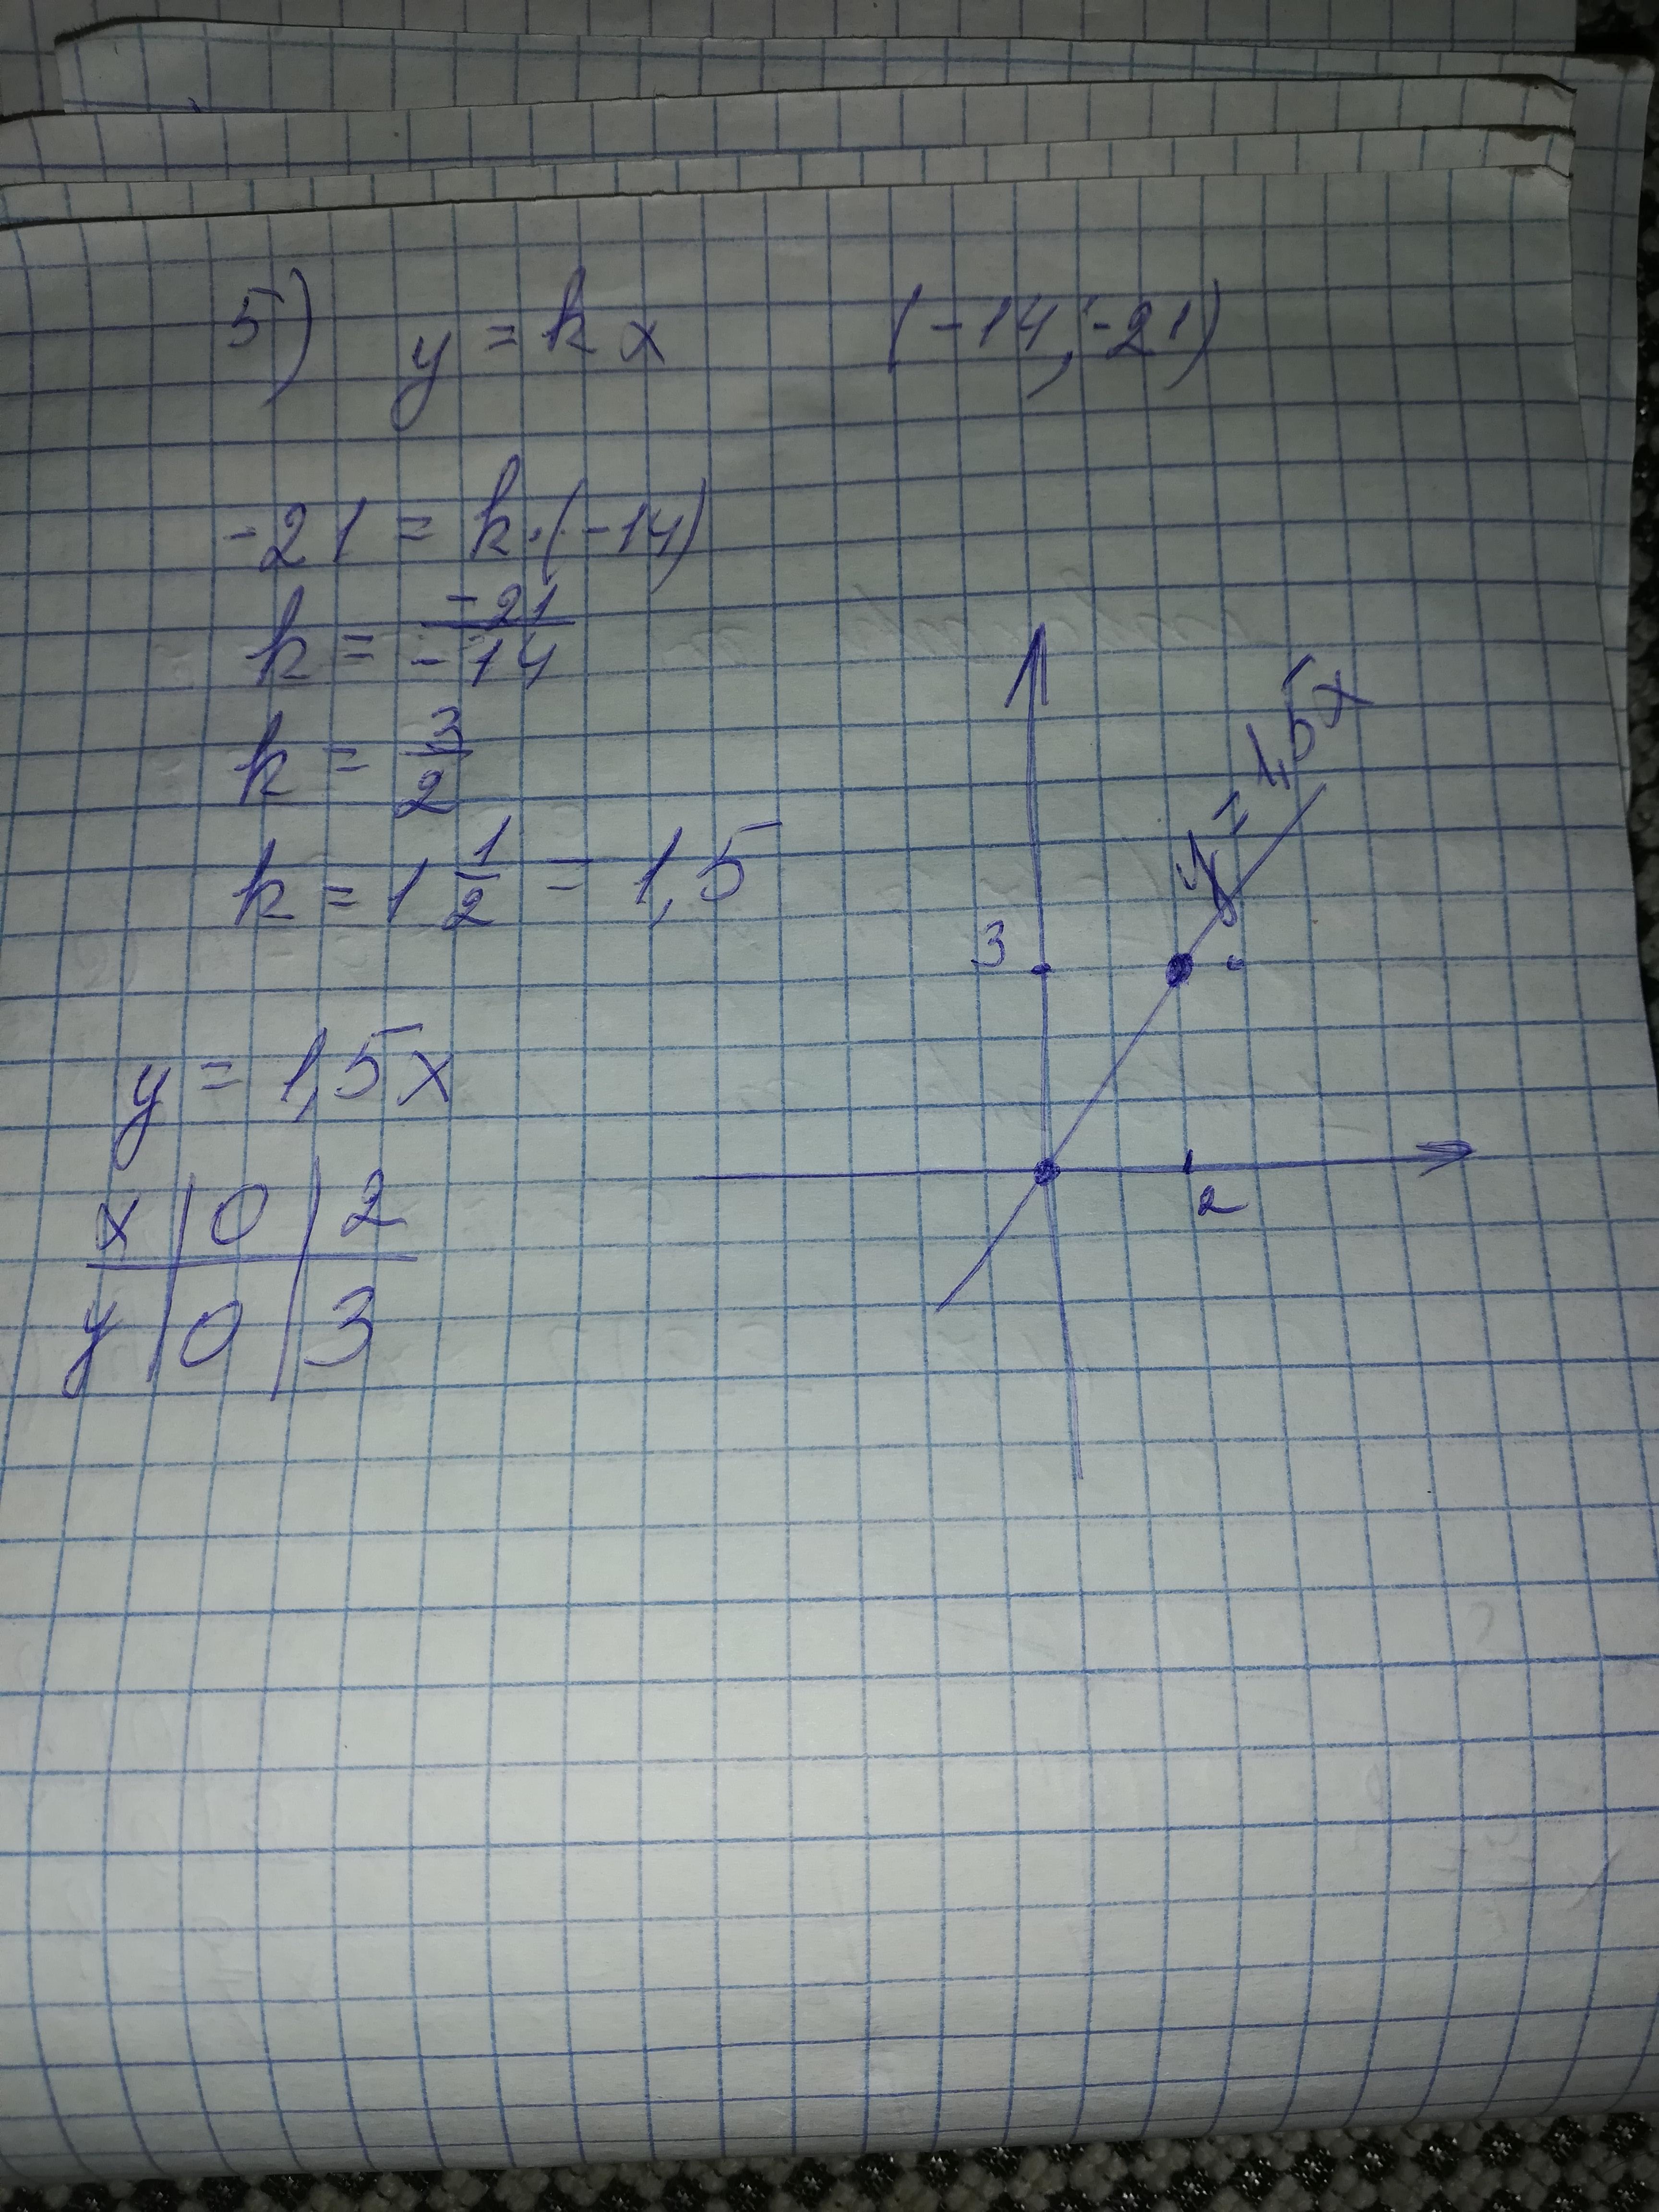 5) y = kx (-14; -21)
-21 = k·(-14)
k = -21/-14
k = 3/2
k = 1 1/2 = 1,5
y = 1,5x
x | 0 | 2
y | 0 | 3
y = 1,5x
3
2